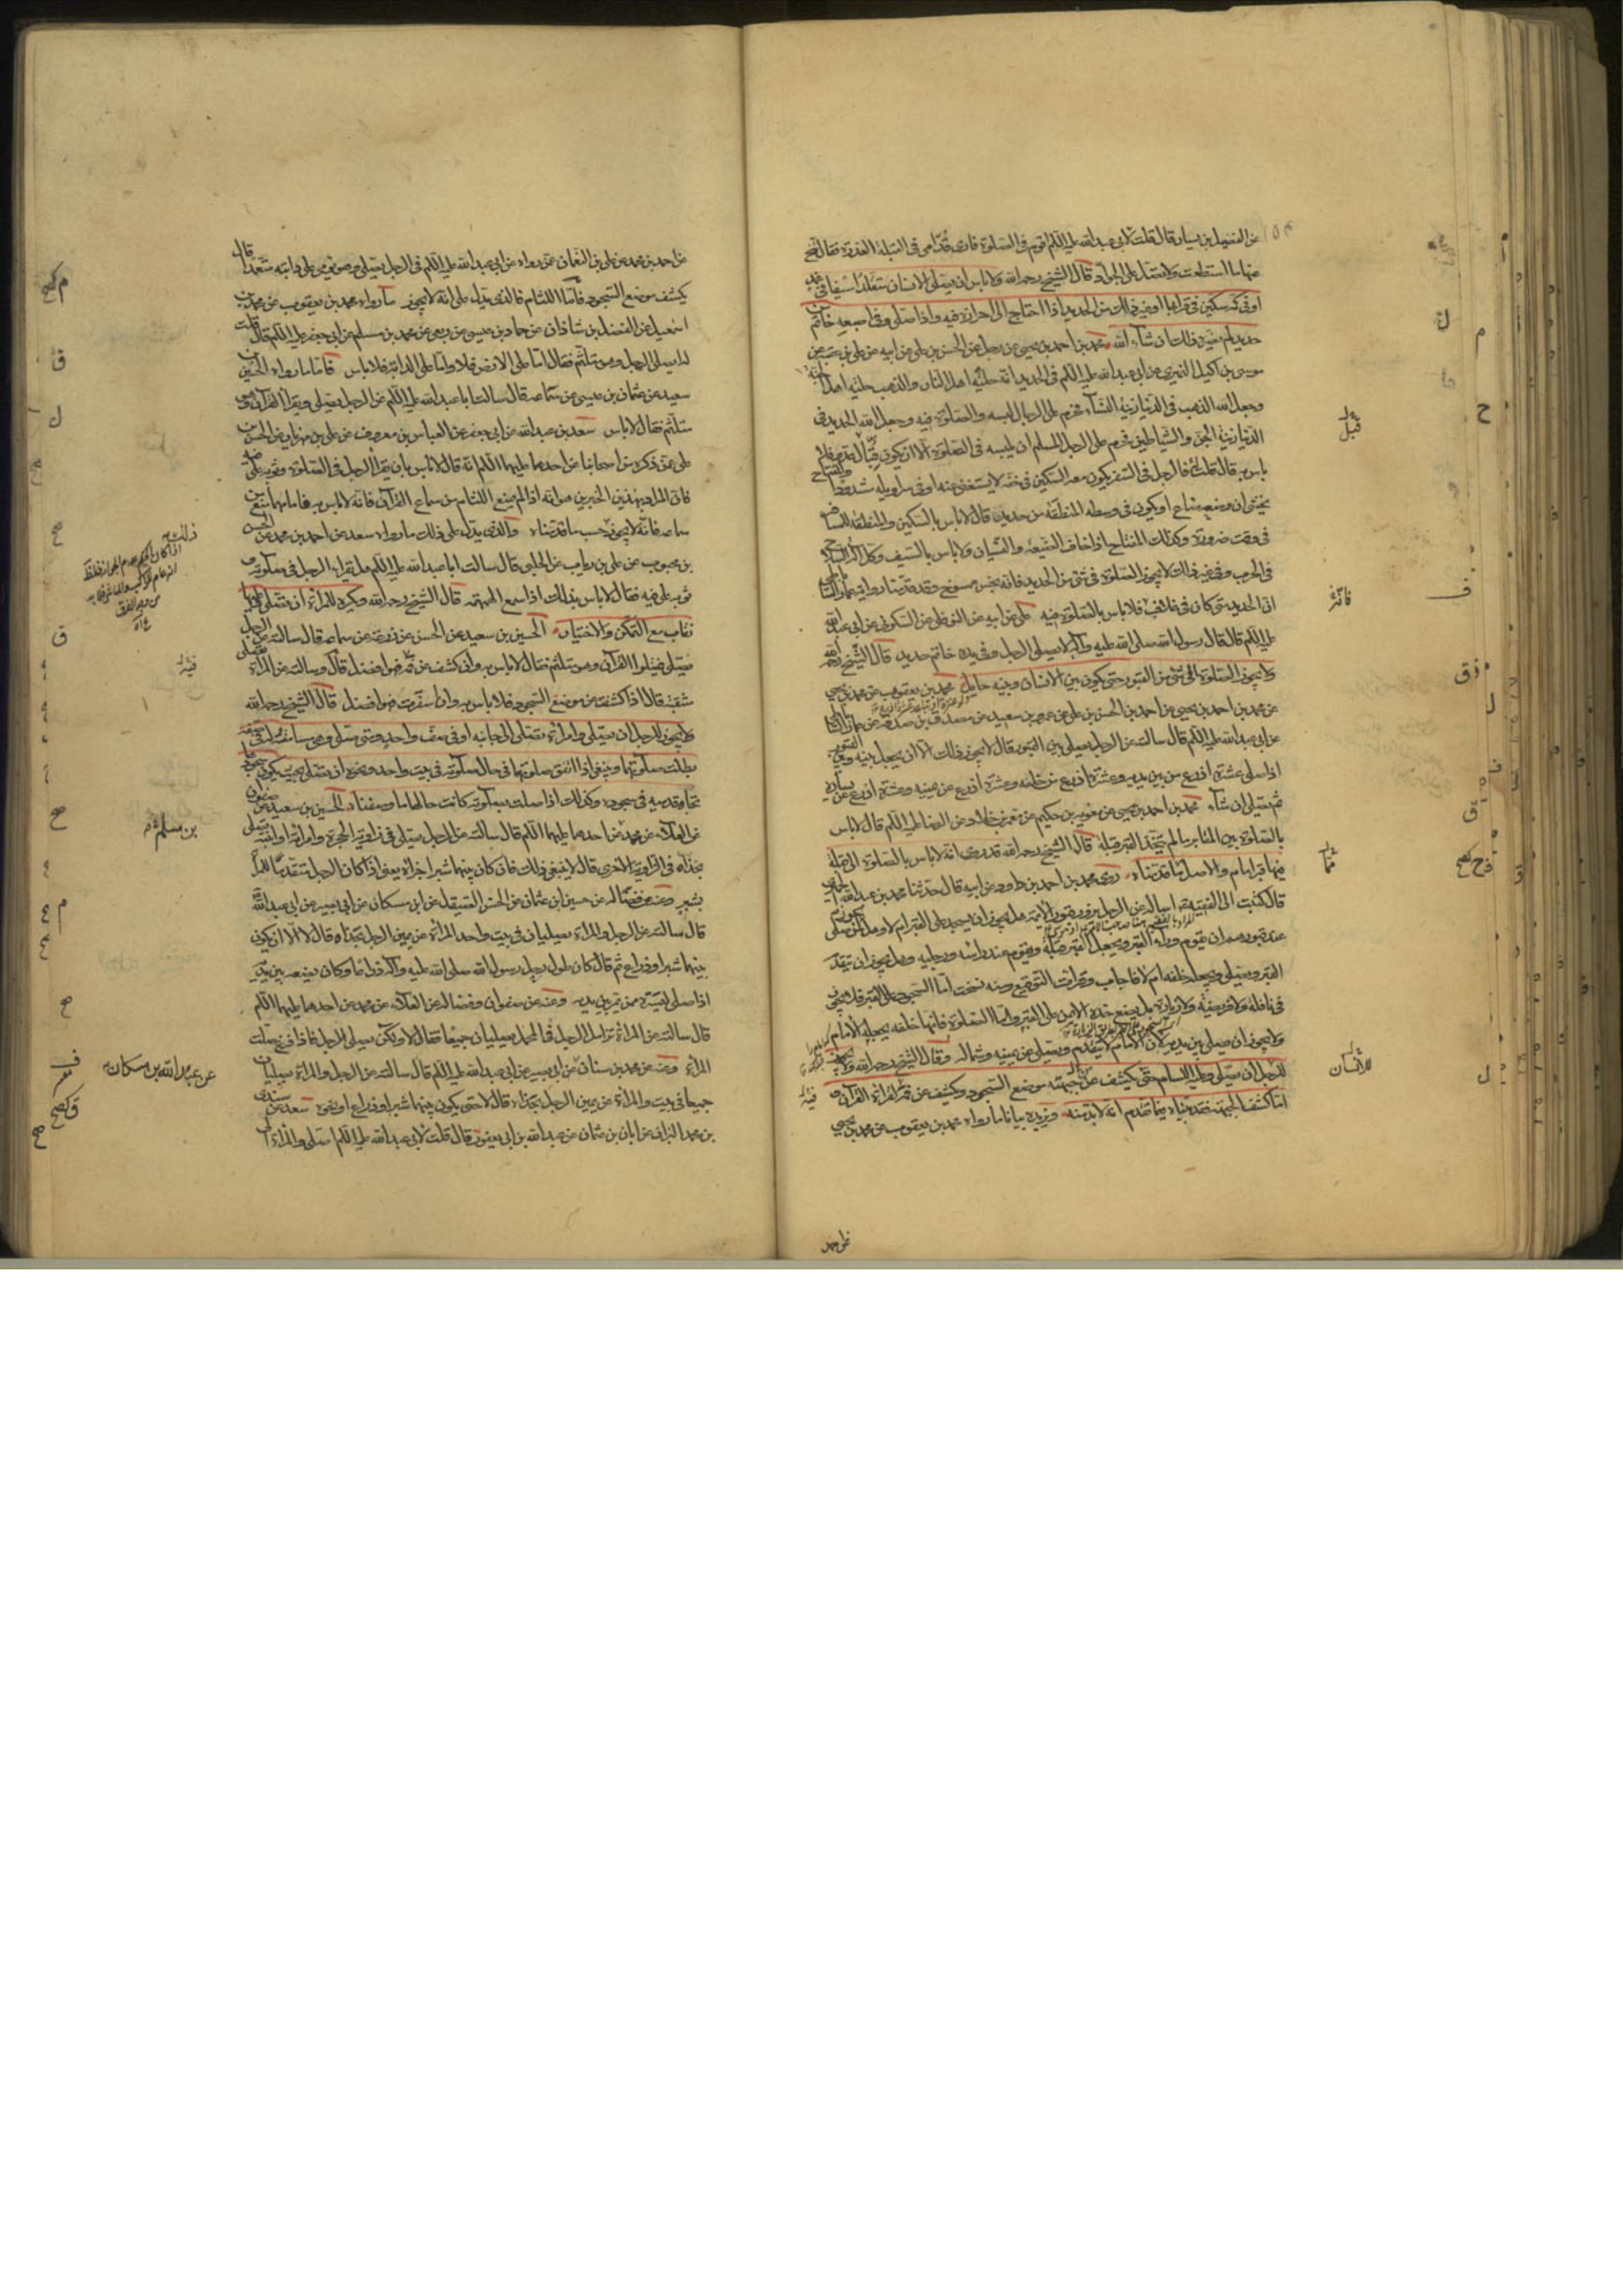 عن الفضيل بن يسار قال قلت لابى عبد الله عليه السلم اقوم فى الصلوة فارى قدامى فى القبلة العذرة فقال تنح
عنها ما استطعت ولا تصل على الجواد قال الشيخ رحمه الله ولا باس ان يصلى الانسان متقلدا سيفا فى غمده
او فى كمه سكين فى قرابها او غير ذلك من الحديد اذا احتاج الى احرازه فيه واذا صلى وفى اصبعه خاتم
حديد لم يضره ذلك ان شاء الله محمد بن احمد بن يحيى عن رجل عن الحسن بن على عن ابيه عن على بن عقبة عن
موسى بن اكيل النميرى عن ابى عبد الله عليه السلم فى الحديد انه حلية اهل النار والذهب حلية اهل الجنة
وجعل الله الذهب فى الدنيا زينة النساء فحرم على الرجال لبسه والصلوة فيه وجعل الله الحديد فى
الدنيا زينة الجن والشياطين فحرم على الرجل المسلم ان يلبسه فى الصلوة الا ان يكون قبال عدو فلا
باس به قال قلت فالرجل فى السفر يكون معه السكين فى خفه لا يستغنى عنه او فى سراويله مشدودا
يخشى ان وضعه ضاع او يكون فى وسطه المنطقة من حديد قال لا باس بالسكين والمنطقة للمسافر
فى وقت ضرورة وكذلك المفتاح اذا خاف الضيعة والنسيان ولا باس بالسيف وكل الة السلاح
فى الحرب وفى غير ذلك لا يجوز الصلوة فى شئ من الحديد فانه نجس ممسوخ وقد قدمنا رواية عمار الساباطى
ان الحديد متى كان فى غلاف فلا باس بالصلوة فيه على عن ابيه عن النوفلى عن السكونى عن ابى عبد الله
عليه السلم قال قال رسول الله صلى الله عليه وآله لا يصلى الرجل وفى يده خاتم حديد قال الشيخ رحمه الله
ولا يجوز الصلوة الى شئ من القبور حتى يكون بين الانسان وبينه حايل محمد بن يعقوب عن محمد بن يحيى
عن محمد بن احمد بن يحيى عن احمد بن الحسن بن على عن عمرو بن سعيد عن مصدق بن صدقة عن عمار الساباطى
عن ابى عبد الله عليه السلم قال سالته عن الرجل يصلى بين القبور قال لا يجوز ذلك الا ان يجعل بينه وبين القبور
اذا صلى عشرة اذرع من بين يديه وعشرة اذرع من خلفه وعشرة اذرع عن يمينه وعشرة اذرع عن يساره
ثم يصلى ان شاء محمد بن احمد بن يحيى عن معوية بن حكيم عن معمر بن خلاد عن الرضا عليه السلم قال لا باس
بالصلوة بين المقابر ما لم يتخذ القبر قبلة قال الشيخ رحمه الله وقد روى انه لا باس بالصلوة الى قبلة
فيها قبر امام والاصل ما قدمناه روى محمد بن احمد بن داود عن ابيه قال حدثنا محمد بن عبد الله الحميرى
قال كتبت الى الفقيه اساله عن الرجل يزور قبور الائمة هل يجوز ان يسجد على القبر ام لا وهل يجوز لمن صلى
عند قبورهم ان يقوم وراء القبر ويجعل القبر قبلة ويقوم عند راسه ورجليه وهل يجوز ان يتقدم
القبر ويصلى ويجعله خلفه ام لا فاجاب وقرات التوقيع ومنه نسخت اما السجود على القبر فلا يجوز
فى نافلة ولا فريضة ولا زيارة بل يضع خده الايمن على القبر واما الصلوة فانها خلفه يجعله الامام
ولا يجوز ان يصلى بين يديه لان الامام لا يتقدم ويصلى عن يمينه وشماله وقال الشيخ رحمه الله ولا يجوز
للرجل ان يصلى وعليه لثام حتى يكشف عن جبهته موضع السجود ويكشف عن فيه لقراءة القرآن
اما كشف الجبهة فقد بيناه فيما تقدم انه لا بد منه ويزيده بيانا ما رواه محمد بن يعقوب عن محمد بن يحيى
قبل
فانه
للانسان
عن احمد بن محمد عن على بن النعمان عمن رواه عن ابى عبد الله عليه السلم فى الرجل يصلى وهو يومى على دابته متعمما قال
يكشف موضع السجود فاما اللثام فالذى يدل على انه لا يجوز ما رواه محمد بن يعقوب عن محمد بن
اسمعيل عن الفضل بن شاذان عن حماد بن عيسى عن ربعى عن محمد بن مسلم عن ابى جعفر عليه السلم قال قلت
له ايصلى الرجل وهو متلثم فقال اما على الارض فلا واما على الدابة فلا باس فاما ما رواه الحسين بن
سعيد عن عثمان بن عيسى عن سماعة قال سالت ابا عبد الله عليه السلم عن الرجل يصلى ويقرا القرآن وهو
متلثم فقال لا باس سعد بن عبد الله عن ابى جعفر عن العباس بن معروف عن على بن مهزيار عن الحسن بن
على عمن ذكره من اصحابنا عن احدهما عليهما السلم انه قال لا باس بان يقرا الرجل فى الصلوة وثوبه على فيه
فان المراد بهذين الخبرين هو انه اذا لم يمنع اللثام من سماع القرآن فانه لا باس به فاما مهما منع من
سماعه فانه لا يجوز حسب ما قدمناه والذى يدل على ذلك ما رواه سعد عن احمد بن محمد عن الحسن
بن محبوب عن على بن رياب عن الحلبى قال سالت ابا عبد الله عليه السلم هل يقرا الرجل فى صلوته و
ثوبه على فيه فقال لا باس بذلك اذا سمع الهمهمة قال الشيخ رحمه الله ويكره للمرأة ان تصلى وعليها
نقاب مع التمكن والاختيار الحسين بن سعيد عن الحسن عن زرعة عن سماعة قال سالته عن الرجل
يصلى فيتلوا القرآن وهو متلثم فقال لا باس به وان كشف عن فيه فهو افضل قال وسالته عن المرأة تصلى
متنقبة قال اذا كشفت عن موضع السجود فلا باس به وان اسفرت فهو افضل قال الشيخ رحمه الله
ولا يجوز للرجل ان يصلى وامرأة تصلى الى جانبه او فى صف واحد ومتى صلى وهى مسامتة له فى صفه
بطلت صلوتهما وينبغى اذا اتفق صلوتها فى حال صلوته فى بيت واحد ونحوه ان تصلى بحيث يكون سجودها
تجاه قدميه فى سجوده وكذلك اذا صلت بصلوته كانت حالها ما وصفناه الحسين بن سعيد عن صفوان
عن العلاء عن محمد عن احدهما عليهما السلم قال سالته عن الرجل يصلى فى زاوية الحجرة وامراته او ابنته تصلى
بحذاه فى الزاوية الاخرى قال لا ينبغى ذلك فان كان بينهما شبرا اجزاه يعنى اذا كان الرجل متقدما للمرأة
بشبر وعنه عن فضالة عن حسين بن عثمان عن الحسن الصيقل عن ابن مسكان عن ابى بصير عن ابى عبد الله
قال سالته عن الرجل والمرأة يصليان فى بيت واحد المرأة عن يمين الرجل بحذاه قال لا الا ان يكون
بينهما شبر او ذراع ثم قال كان طول رحل رسول الله صلى الله عليه وآله ذراعا وكان يضعه بين يديه
اذا صلى ليستره ممن يمر بين يديه وعنه عن صفوان وفضالة عن العلاء عن محمد عن احدهما عليهما السلم
قال سالته عن المرأة تزامل الرجل فى المحمل يصليان جميعا فقال لا ولكن يصلى الرجل فاذا فرغ صلت
المرأة وعنه عن محمد بن سنان عن ابى بصير عن ابى عبد الله عليه السلم قال سالته عن الرجل والمرأة يصليان
جميعا فى بيت والمرأة عن يمين الرجل بحذاء قال لا حتى يكون بينهما شبر او ذراع او نحوه سعد عن سندى
بن محمد البزاز عن ابان بن عثمان عن عبد الله بن ابى يعفور قال قلت لابى عبد الله عليه السلم اصلى والمرأة الى
بن مسلم
عن عبد الله بن مسكان